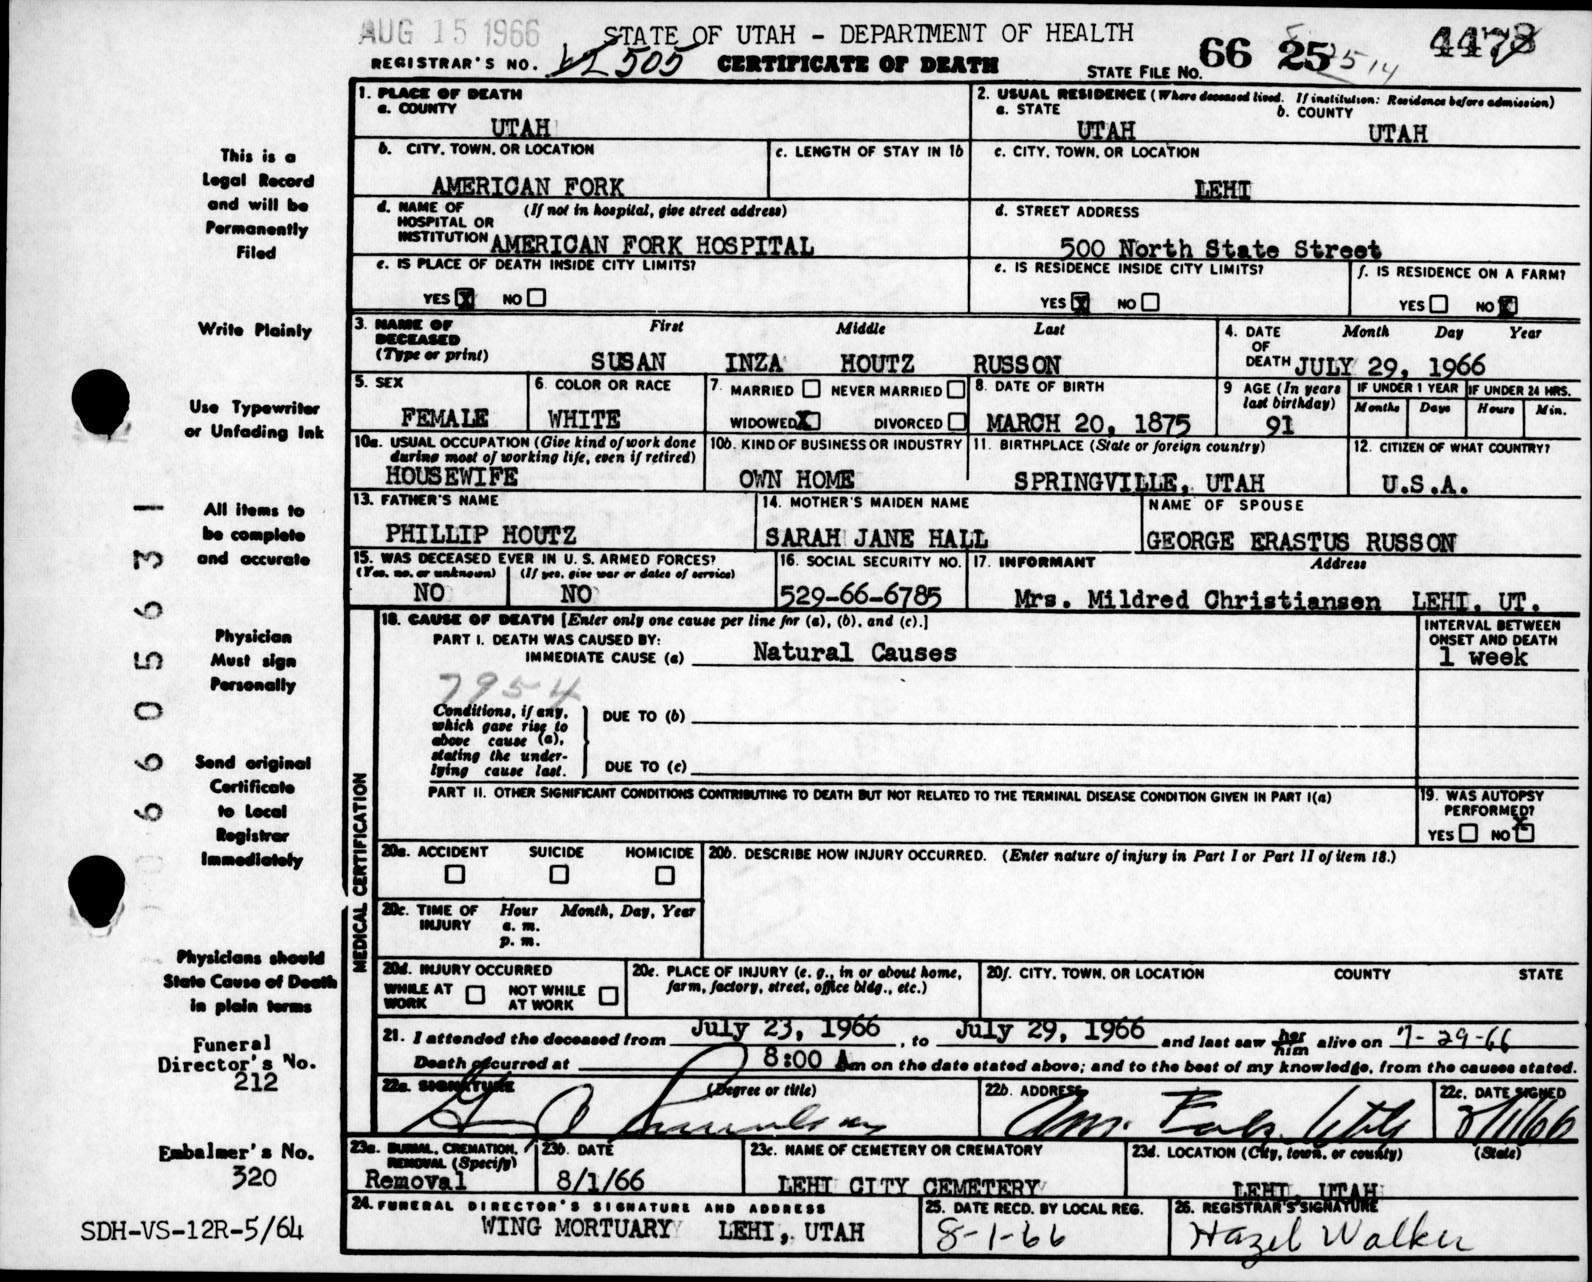 AUG 15 1966
STATE OF UTAH - DEPARTMENT OF HEALTH
REGISTRAR'S NO. 505 CERTIFICATE OF DEATH STATE FILE NO. 66 25 2514 4478
1. PLACE OF DEATH
a. COUNTY
UTAH
2. USUAL RESIDENCE (Where deceased lived. If institution: Residence before admission)
a. STATE b. COUNTY
UTAH UTAH
b. CITY, TOWN, OR LOCATION
AMERICAN FORK
c. LENGTH OF STAY IN 1b
c. CITY, TOWN, OR LOCATION
LEHI
d. NAME OF HOSPITAL OR INSTITUTION (If not in hospital, give street address)
AMERICAN FORK HOSPITAL
d. STREET ADDRESS
500 North State Street
e. IS PLACE OF DEATH INSIDE CITY LIMITS?
YES X NO
e. IS RESIDENCE INSIDE CITY LIMITS?
YES X NO
f. IS RESIDENCE ON A FARM?
YES NO X
3. NAME OF DECEASED (Type or print) First Middle Last
SUSAN INZA HOUTZ RUSSON
4. DATE OF DEATH Month Day Year
JULY 29, 1966
5. SEX
FEMALE
6. COLOR OR RACE
WHITE
7. MARRIED NEVER MARRIED
WIDOWED X DIVORCED
8. DATE OF BIRTH
MARCH 20, 1875
9 AGE (In years last birthday)
91
IF UNDER 1 YEAR IF UNDER 24 HRS.
Months Days Hours Min.
10a. USUAL OCCUPATION (Give kind of work done during most of working life, even if retired)
HOUSEWIFE
10b. KIND OF BUSINESS OR INDUSTRY
OWN HOME
11. BIRTHPLACE (State or foreign country)
SPRINGVILLE, UTAH
12. CITIZEN OF WHAT COUNTRY?
U.S.A.
13. FATHER'S NAME
PHILLIP HOUTZ
14. MOTHER'S MAIDEN NAME
SARAH JANE HALL
NAME OF SPOUSE
GEORGE ERASTUS RUSSON
15. WAS DECEASED EVER IN U. S. ARMED FORCES?
(Yes, no, or unknown) (If yes, give war or dates of service)
NO NO
16. SOCIAL SECURITY NO.
529-66-6785
17. INFORMANT Address
Mrs. Mildred Christiansen LEHI, UT.
MEDICAL CERTIFICATION
18. CAUSE OF DEATH [Enter only one cause per line for (a), (b), and (c).]
PART I. DEATH WAS CAUSED BY:
IMMEDIATE CAUSE (a) Natural Causes
INTERVAL BETWEEN ONSET AND DEATH
1 week
7954
Conditions, if any, which gave rise to above cause (a), stating the underlying cause last.
DUE TO (b)
DUE TO (c)
PART II. OTHER SIGNIFICANT CONDITIONS CONTRIBUTING TO DEATH BUT NOT RELATED TO THE TERMINAL DISEASE CONDITION GIVEN IN PART I(a)
19. WAS AUTOPSY PERFORMED?
YES NO X
20a. ACCIDENT SUICIDE HOMICIDE
20b. DESCRIBE HOW INJURY OCCURRED. (Enter nature of injury in Part I or Part II of item 18.)
20c. TIME OF INJURY Hour Month, Day, Year
a. m.
p. m.
20d. INJURY OCCURRED
WHILE AT WORK NOT WHILE AT WORK
20e. PLACE OF INJURY (e. g., in or about home, farm, factory, street, office bldg., etc.)
20f. CITY, TOWN, OR LOCATION COUNTY STATE
21. I attended the deceased from July 23, 1966, to July 29, 1966 and last saw her him alive on 7-29-66
Death occurred at 8:00 A m on the date stated above; and to the best of my knowledge, from the causes stated.
22a. SIGNATURE (Degree or title)
22b. ADDRESS
22c. DATE SIGNED
8/1/66
23a. BURIAL, CREMATION, REMOVAL (Specify)
Removal
23b. DATE
8/1/66
23c. NAME OF CEMETERY OR CREMATORY
LEHI CITY CEMETERY
23d. LOCATION (City, town, or county) (State)
LEHI, UTAH
24. FUNERAL DIRECTOR'S SIGNATURE AND ADDRESS
WING MORTUARY LEHI, UTAH
25. DATE RECD. BY LOCAL REG.
8-1-66
26. REGISTRAR'S SIGNATURE
Hazel Walker
This is a
Legal Record
and will be
Permanently
Filed
Write Plainly
Use Typewriter
or Unfading Ink
All items to
be complete
and accurate
Physician
Must sign
Personally
Send original
Certificate
to Local
Registrar
Immediately
Physicians should
State Cause of Death
in plain terms
Funeral
Director's No.
212
Embalmer's No.
320
SDH-VS-12R-5/64
6605631